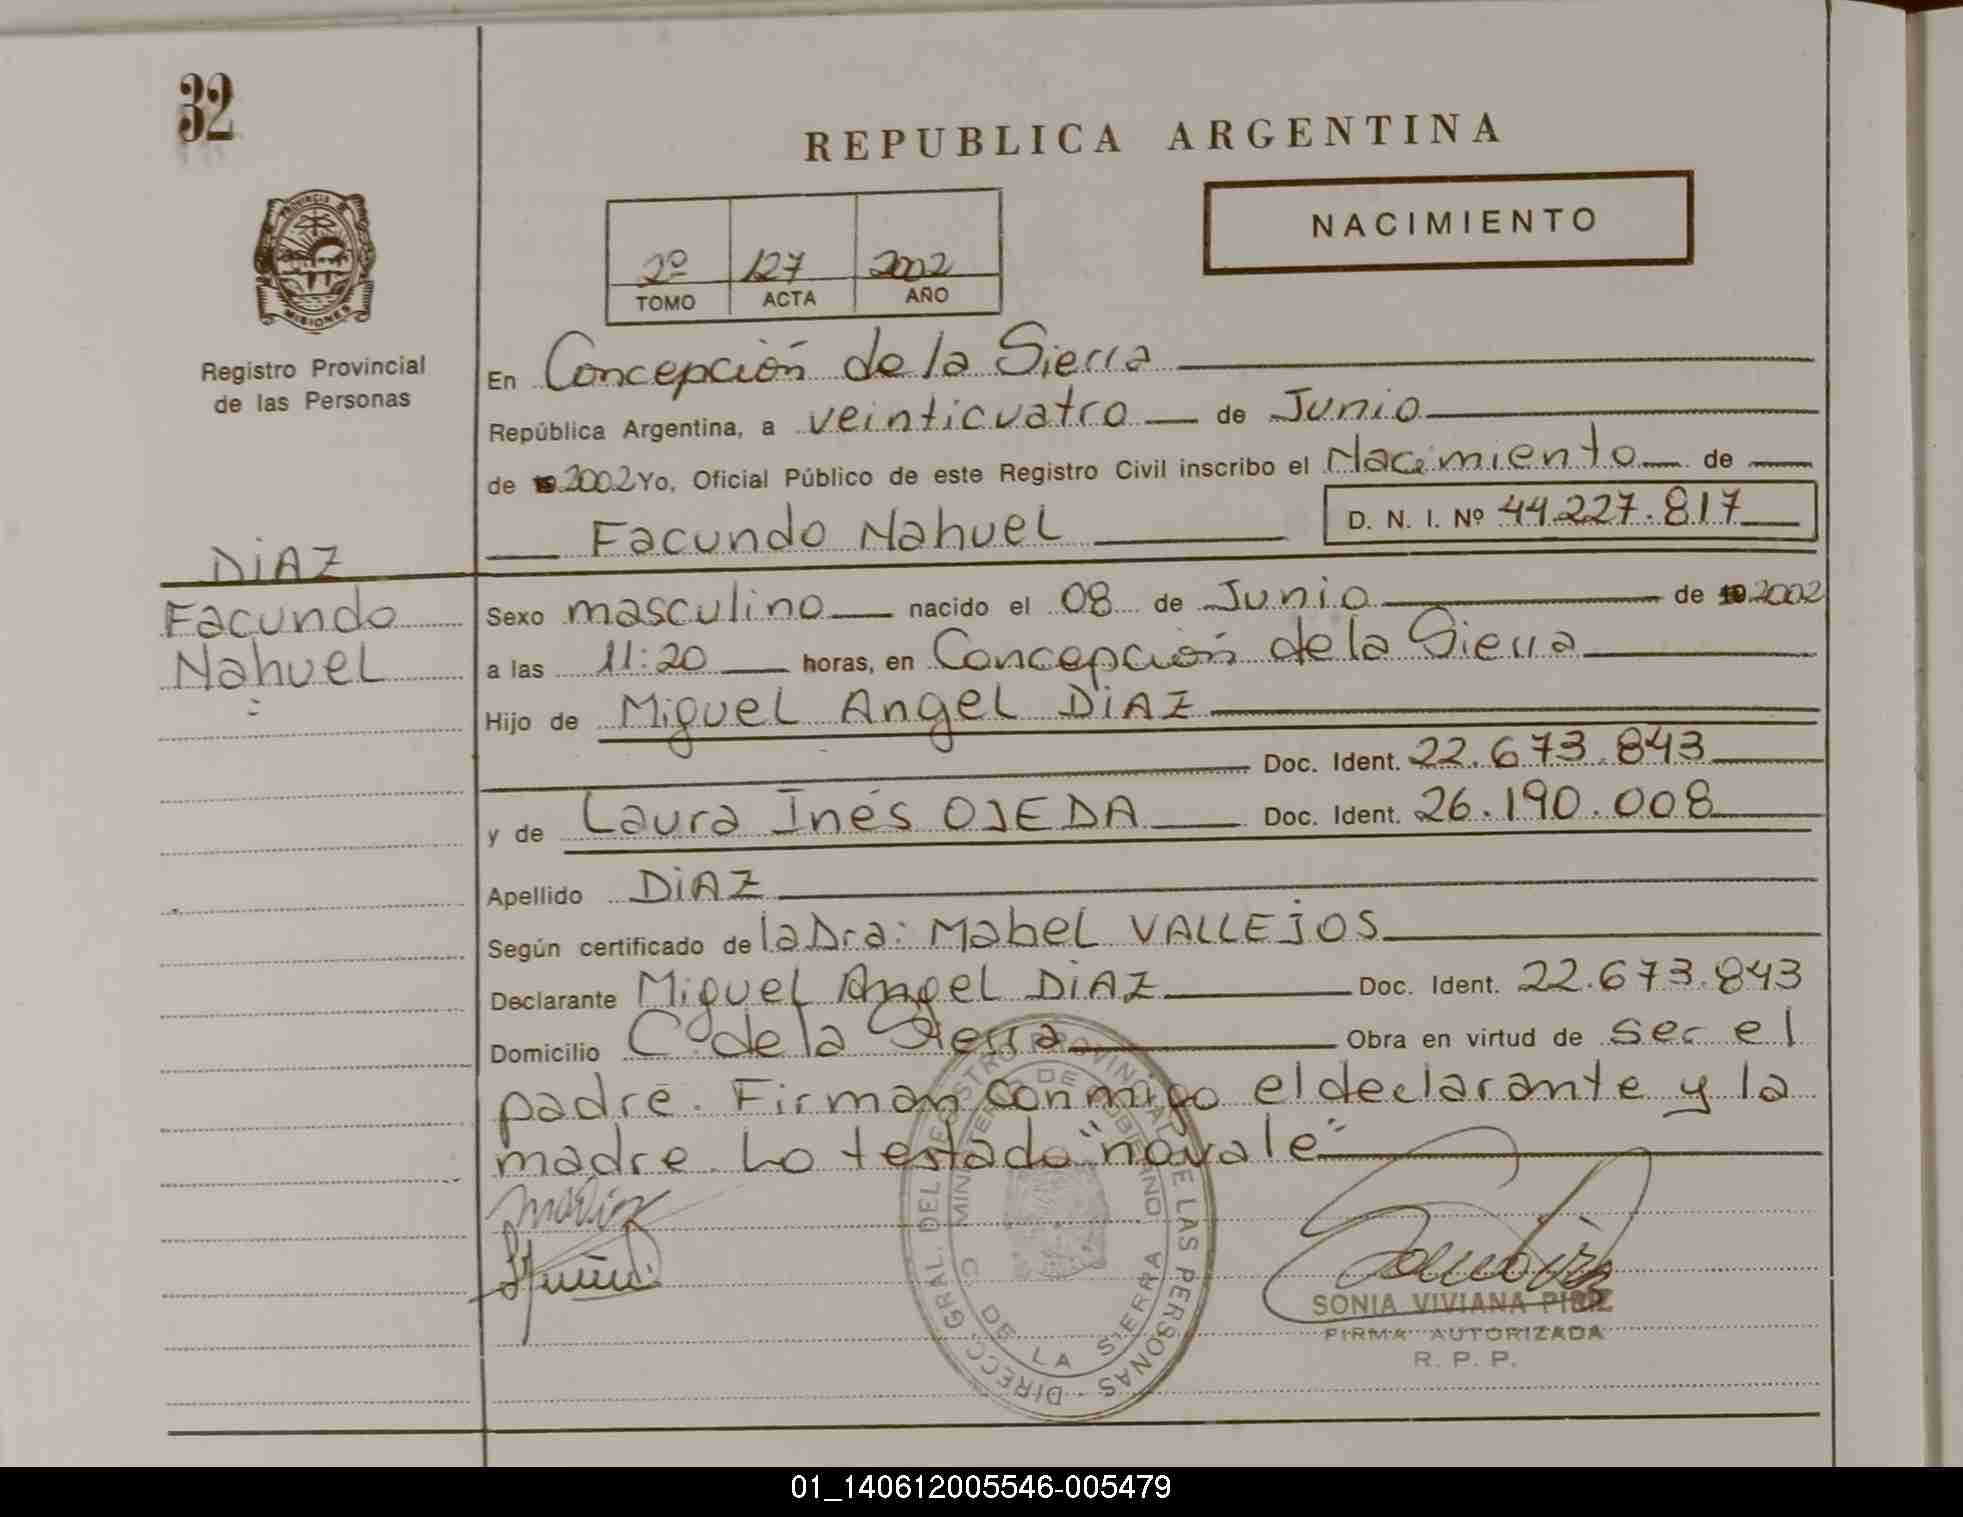 32
REPUBLICA ARGENTINA
NACIMIENTO
2º 127 2002
TOMO ACTA AÑO
PROVINCIA DE
MISIONES
Registro Provincial
de las Personas
En Concepción de la Sierra
República Argentina, a veinticuatro de Junio
de 2002 Yo, Oficial Público de este Registro Civil inscribo el Nacimiento de
Facundo Nahuel D. N. I. Nº 44.227.817
DIAZ
Facundo
Nahuel
Sexo masculino nacido el 08 de Junio de 2002
a las 11:20 horas, en Concepción de la Sierra
Hijo de Miguel Angel DIAZ
Doc. Ident. 22.673.843
y de Laura Inés OJEDA Doc. Ident. 26.190.008
Apellido DIAZ
Según certificado de la Dra: Mabel VALLEJOS
Declarante Miguel Angel DIAZ Doc. Ident. 22.673.843
Domicilio C. de la Sierra Obra en virtud de ser el
padre. Firman conmigo el declarante y la
madre. Lo testado "no vale"
DIRECC. GRAL. DEL REGISTRO PROVINCIAL DE LAS PERSONAS
MINISTERIO DE GOBIERNO
C. DE LA SIERRA
SONIA VIVIANA PIRIZ
FIRMA AUTORIZADA
R. P. P.
01_140612005546-005479